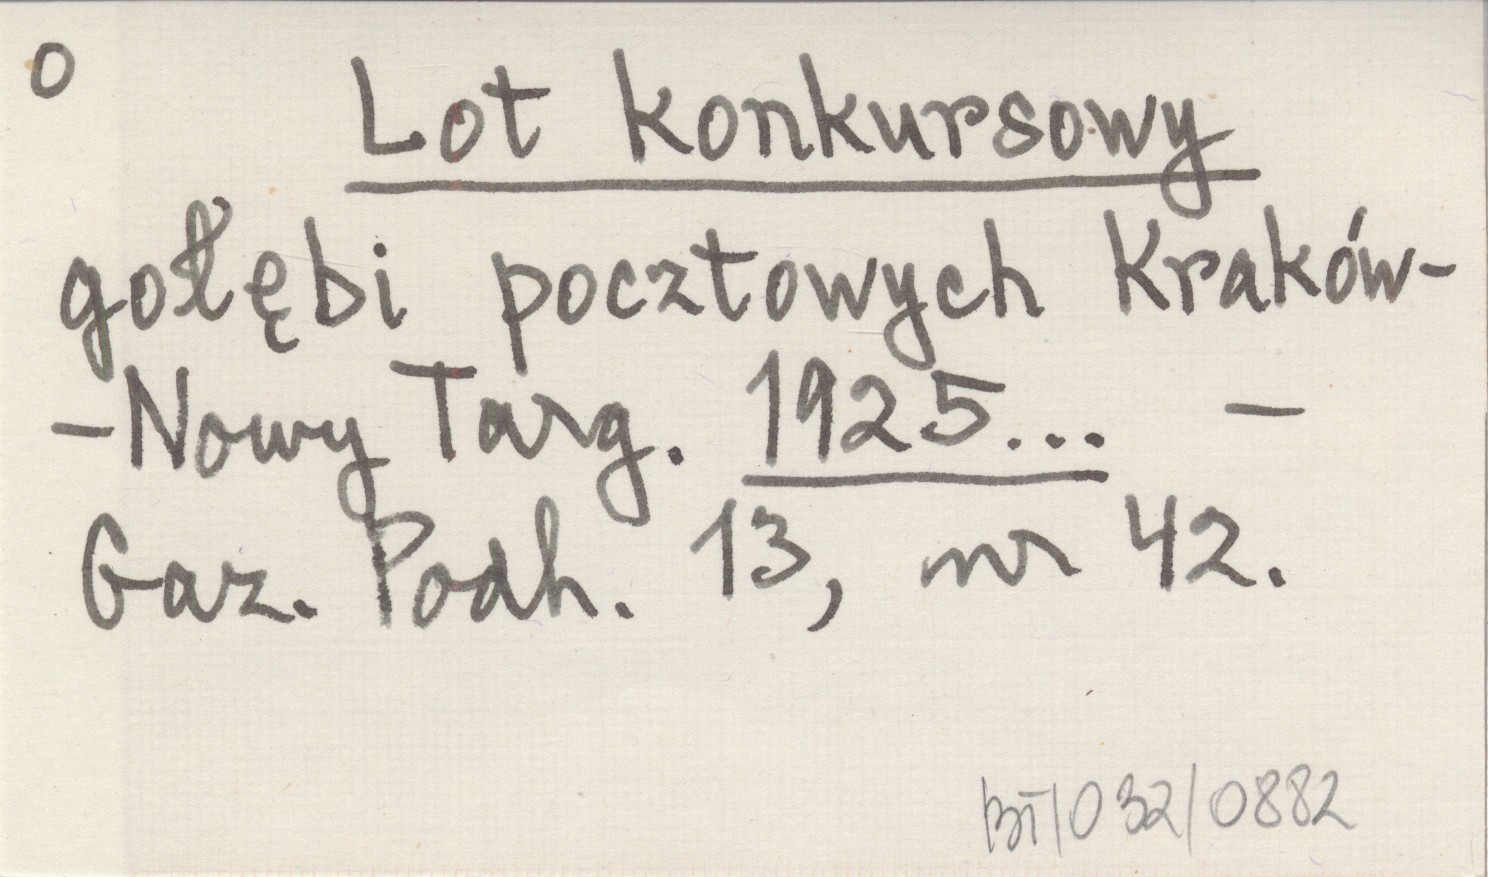 O
Lot konkursowy
gołębi pocztowych Kraków-
-Nowy Targ. 1925... -
Gaz. Podh. 13, nr 42.
BT/032/0882